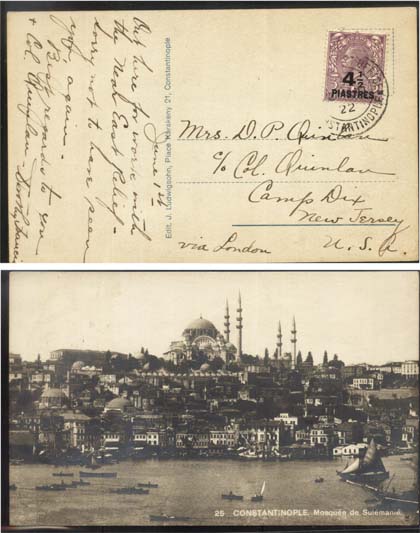 June 1st
Out here for work with
the Near East Relief -
sorry not to have seen
you again -
Best regards to you
+ Col. Quinlan -
Edit. J. Ludwigsohn, Place Karakeuy 21, Constantinople
4½
PIASTRES
22
Mrs. D. P. Quinlan
c/o Col. Quinlan
Camp Dix
New Jersey
via London U. S. A.
25 CONSTANTINOPLE. Mosquée de Suléimanié.